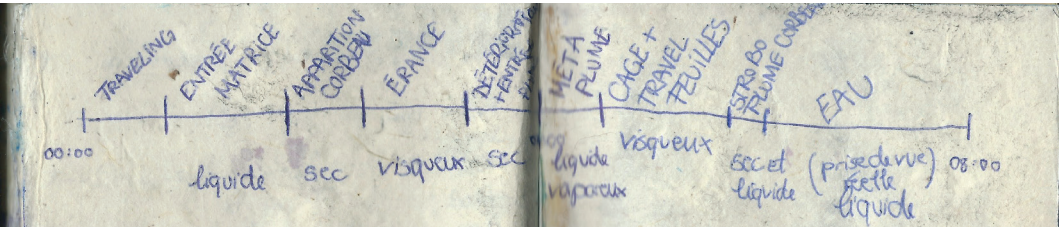 TRAVELING
ENTRÉE
MATRICE
APPARITION
CORBEAU
ÉRANCE
META
PLUME
CAGE +
TRAVEL
FEUILLES
STROBO
PLUME CORBEAU
EAU
00:00
liquide
sec
visqueux
sec
liquide
vaporeux
visqueux
sec et
liquide
(prise de vue)
réelle
liquide
08:00